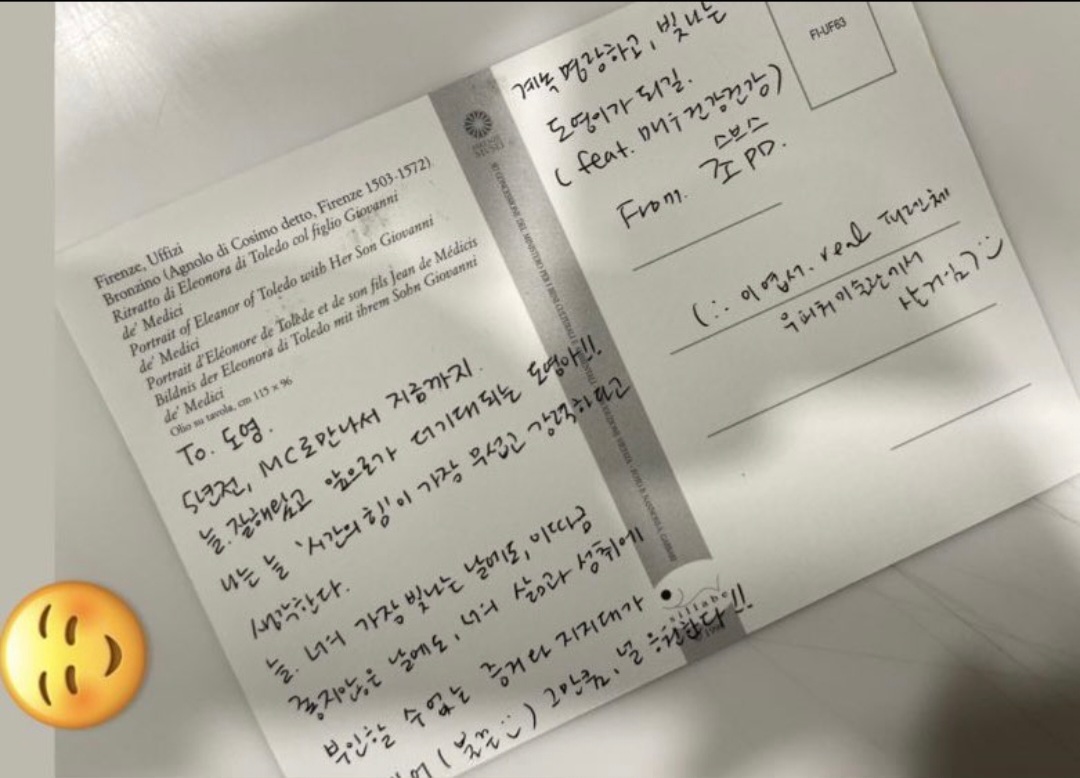 Firenze, Uffizi
Bronzino (Agnolo di Cosimo detto, Firenze 1503-1572)
Ritratto di Eleonora di Toledo col figlio Giovanni
de' Medici
Portrait of Eleanor of Toledo with Her Son Giovanni
de' Medici
Portrait d'Eléonore de Tolède et de son fils Jean de Médicis
Bildnis der Eleonora di Toledo mit ihrem Sohn Giovanni
de' Medici
Olio su tavola, cm 115 x 96
To. 도영.
5년전, MC로만나서 지금까지.
늘. 잘해왔고 앞으로가 더기대되는 도영아!!
나는 늘 '시간의 힘'이 가장 무섭고 강력하다고
생각한다.
늘. 너의 가장 빛나는 날에도, 이따금
좋지않은 날에도, 너의 삶과 성취에
부인할 수 없는 증거라 지지대가
(볼꾼:)) 그만큼, 널 응원한다!!
계속 명랑하고, 빛나는
도영이가 되길.
(feat. 매우건강건강)
스브스
From. 조PD.
(∴ 이엽서. real 피렌체
우피치미술관에서
산거임) :)
FI-UF63
sillabe